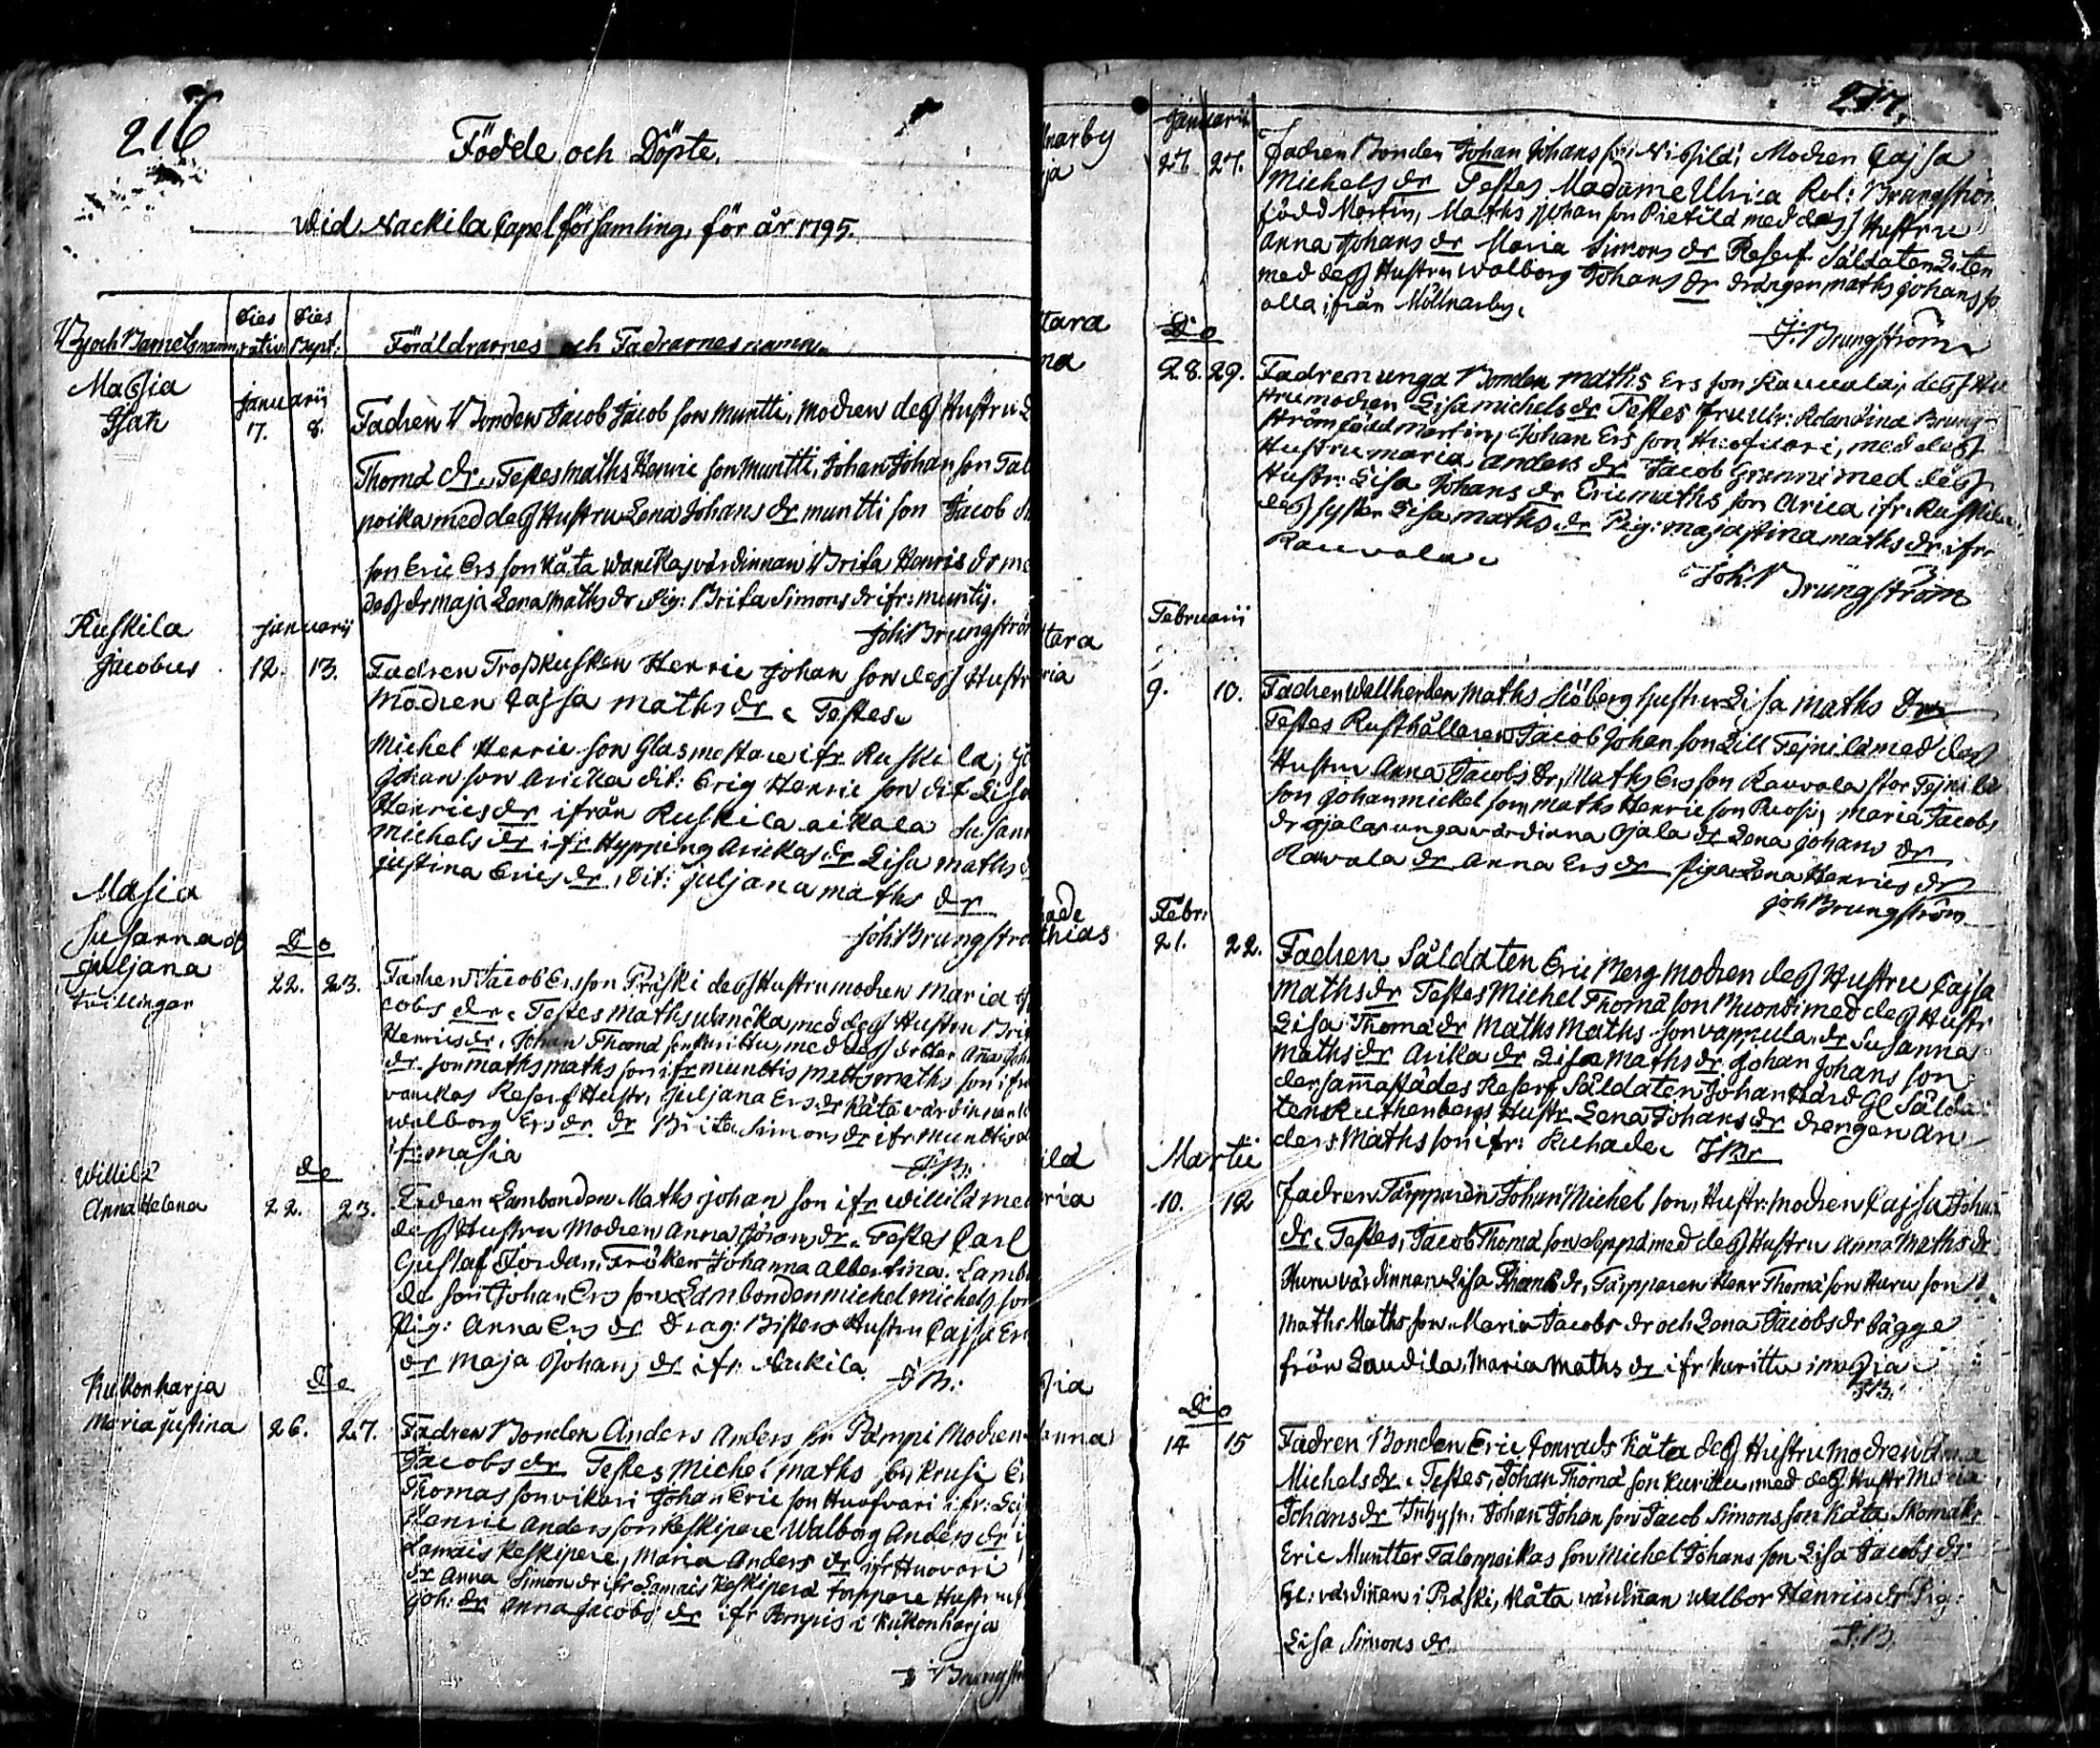 216
Födde och Döpte.
wid Nackila Capel församling, för år 1795.
By och Barnets namn
Dies Dies
nativi Bapt:
Föräldrarnes och Fadrarnes namn
Masia
januarij
17. 8. Fadren Bonden Jacob Jacob son muntti, modren dess Hustru
Thoma dr. Testes maths Henric son muntti, Johan Johan son Tal
poika med dess Hustru Lena Johans dr muntti son Jacob
son Eric Ers son Kåta wancka, värdinnan Brita Henris dr
dess dr maja Lena maths dr Pig: Brita Simons dr ifr: muntis.
joh: Brungströ
Ruskila januarij
Jacobus 12. 13. Fadren Trosskusken Henric Johan son dess Hustr
Modren Cajsa maths dr. Testes
Michel Henric son Glasmestare ifr Ruskila,
Johan son Aricka dit: Erig Henric son dit Lisa
Henrics dr ifrån Ruskila aikala Susann
Michels dr ifr Hypping Arickas dr Lisa maths
justina Erics dr, dit: juljana maths dr
joh Brungströ
Masia
Susanna och Do
Juljana
tvillingar 22. 23. Fadren Jacob Ersson Präski dess Hustru modren Maria
cobs dr. Testes Maths wancka, med dess Hustru Brit
Henrics dr, Johan Thoma son Kurittu, med dess dotter Anna Joh
dr. son maths maths son ifr munttis maths maths son ifr
wanckas Reserf Hustr, Juljana Ers dr Kåta värdinnan
walborg Ers dr dr Brita Simons dr ifr munttis
ifr: masia J:B:
Willilä do
Anna Helena 22. 23. Fadren Lambonden Maths johan son ifr willilä med
dess Hustru Modren Anna Göran dr. Testes Carl
Gustaf Jordan, Fröken Johanna Albertina. Lambo
de son Johan Ers son Lambonden michel michels son
Pig: Anna Ers dr Drag: Bisters Hustru Cajsa Er
dr Maja Johans dr ifr Nackila J:B:
Kukonharja do
Maria justina 26. 27. Fadren Bonden Anders Anders son Pämpi Modren
Jacobs dr Testes Michel maths son Krusi
Thomas son vikari Johan Eric son Huofvari ifr:
Henric Anders son Keskipere Walborg Anders dr
Lamais Keskipere, Maria Anders dr ifr Huovari
dr Anna Simon dr ifr Lamais Keskiperä torppare Hustru
joh: dr Anna Jacobs dr ifr Pempis i Kukonharja
J Brungst
217.
lnarby Januarii
ja 27. 27. Fadren Bonden Johan Johans son Nissilä, Modren Cajsa
Michels dr Testes Madame Ulrica Rol: Brungström
född Martin, Maths Johan son Pietilä med dess Hustru
Anna Johans dr Maria Simons dr Reserf Såldaten
med dess Hustru Walborg Johans dr drängen maths johans so
alla ifrån Mållnarby.
J: Brungström
tara Do
na 28. 29. Fadren unga Bonden maths Ers son Rauvola, dess Hu
stru modren Lisa michels dr Testes fru Ulr: Rolandina Brung
ström född Martin, Johan Ers son Huofvari, med dess
Hustru maria anders dr Jacob Grönni med dess
Hustr: Lisa Johans dr Eric maths son Arica ifr: Ruskila
dess syster Lisa maths dr Pig: maja stina maths dr ifr
Rauvola.
Joh: Brungström
Februarii
tara
ria 9. 10. Fadren wallherden maths Siöberg hustru Lisa maths dr
Testes Rusthållaren Jacob Johan son Lill Tejnilä med dess
Hustru Anna Jacobs dr, Maths Ers son Rauvola stor Tejnilä
son johan mickel son, maths Henric son Ruosi, Maria Jacobs
dr Ojalas unga värdinna Ojala dr Lena johans dr
Rauvola dr Anna Ers dr Piga Lena Henrics dr
joh Brungström
hade Febr:
thias 21. 22. Fadren Såldaten Eric Berg modren dess Hustru Cajsa
maths dr Testes Michel Thoma son Muonti med dess Hustr
Lisa Thoma dr Maths Maths son vappula dr Susanna
Maths dr Arika dr Lisa maths dr Johan Johans son
dersammastädes Reserf Såldaten Johan Hård Gl Sålda
ten Ruthenbergs Hustr Lena Johans dr drengen An
ders Maths son ifr: Kuhade. J Br
ilä Martii
ria 10. 12 Fadren Tårpparen Johan Michel son, Hustr: modren Cajsa Johan
dr. Testes, Jacob Thoma son Seppä med dess Hustru Anna Maths dr
Huru värdinnan Lisa Thoma dr, Tårpparen Henr Thoma son Huru son
Maths Maths son Maria Jacobs dr och Lena Jacobs dr bägge
från Laudila, Maria Maths dr ifr Kurittu i masia
J:B:
sia Do
anna 14 15 Fadren Bonden Eric Conrads Kåta dess Hustru modren Anna
Michels dr. Testes, Johan Thoma son Kurittu, med dess Hustr Maria
Johans dr Inhys: Johan Johan son Jacob Simons son Kåta Skomak:
Eric Muntter Talonpoikas son Michel Johans son Lisa Jacobs dr
Gl: värdinnan i Präski, Kåta värdinnan walbor Henrics dr Pig:
Lisa Simons dr. J:B.